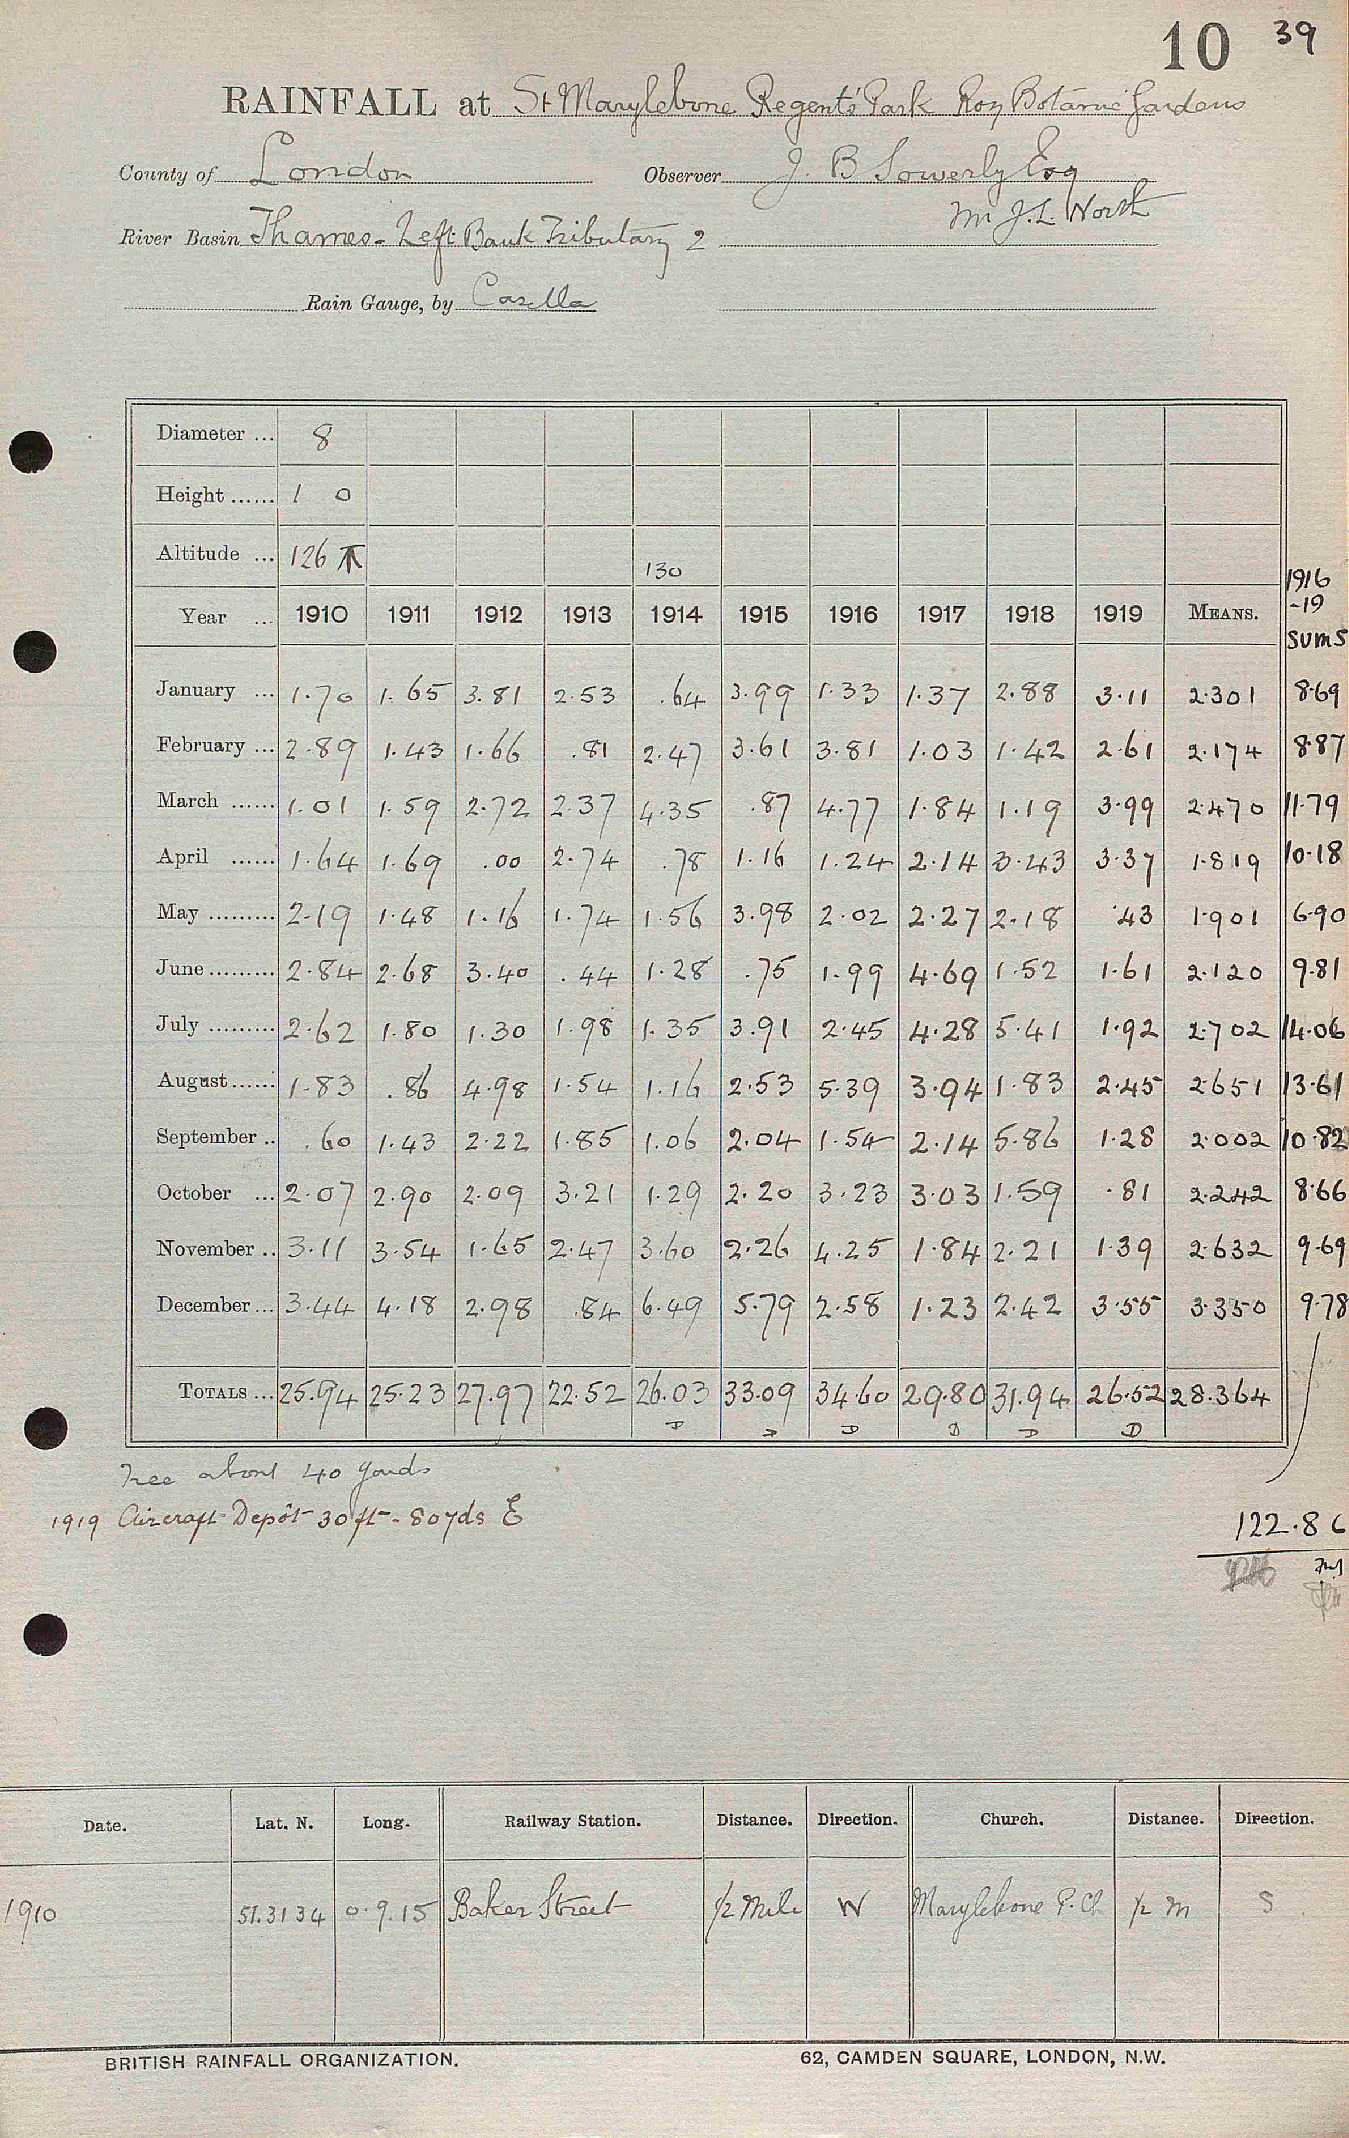 10 39
RAINFALL at St Marylebone Regent's Park Roy Botanic Gardens
County of London Observer J. B Sowerby Esq
Mr J. L. North
River Basin Thames - Left Bank Tributary 2
Rain Gauge, by Casella
Diameter ... 8
Height ...... 1 0
Altitude ... 126 130
1916
-19
sums
Year ... 1910 1911 1912 1913 1914 1915 1916 1917 1918 1919 MEANS.
January ... 1.70 1.65 3.81 2.53 .64 3.99 1.33 1.37 2.88 3.11 2.301 8.69
February ... 2.89 1.43 1.66 .81 2.47 3.61 3.81 1.03 1.42 2.61 2.174 8.87
March ...... 1.01 1.59 2.72 2.37 4.35 .87 4.77 1.84 1.19 3.99 2.470 11.79
April ...... 1.64 1.69 .00 2.74 .78 1.16 1.24 2.14 3.43 3.37 1.819 10.18
May ......... 2.19 1.48 1.16 1.74 1.56 3.98 2.02 2.27 2.18 .43 1.901 6.90
June ......... 2.84 2.68 3.40 .44 1.28 .75 1.99 4.69 1.52 1.61 2.120 9.81
July ......... 2.62 1.80 1.30 1.98 1.35 3.91 2.45 4.28 5.41 1.92 2.702 14.06
August ...... 1.83 .86 4.98 1.54 1.16 2.53 5.39 3.94 1.83 2.45 2.651 13.61
September .. .60 1.43 2.22 1.85 1.06 2.04 1.54 2.14 5.86 1.28 2.002 10.82
October ... 2.07 2.90 2.09 3.21 1.29 2.20 3.23 3.03 1.59 .81 2.242 8.66
November .. 3.11 3.54 1.65 2.47 3.60 2.26 4.25 1.84 2.21 1.39 2.632 9.69
December ... 3.44 4.18 2.98 .84 6.49 5.79 2.58 1.23 2.42 3.55 3.350 9.78
TOTALS ... 25.94 25.23 27.97 22.52 26.03 33.09 34.60 29.80 31.94 26.52 28.364
D D D D D D
Tree about 40 yards
1919 Aircraft Depôt 30 ft - 80yds E
122.86
Date. Lat. N. Long. Railway Station. Distance. Direction. Church. Distance. Direction.
1910 51.31 34 0.9.15 Baker Street 1/2 Mile W Marylebone P. Ch 1/2 m S
BRITISH RAINFALL ORGANIZATION. 62, CAMDEN SQUARE, LONDON, N.W.